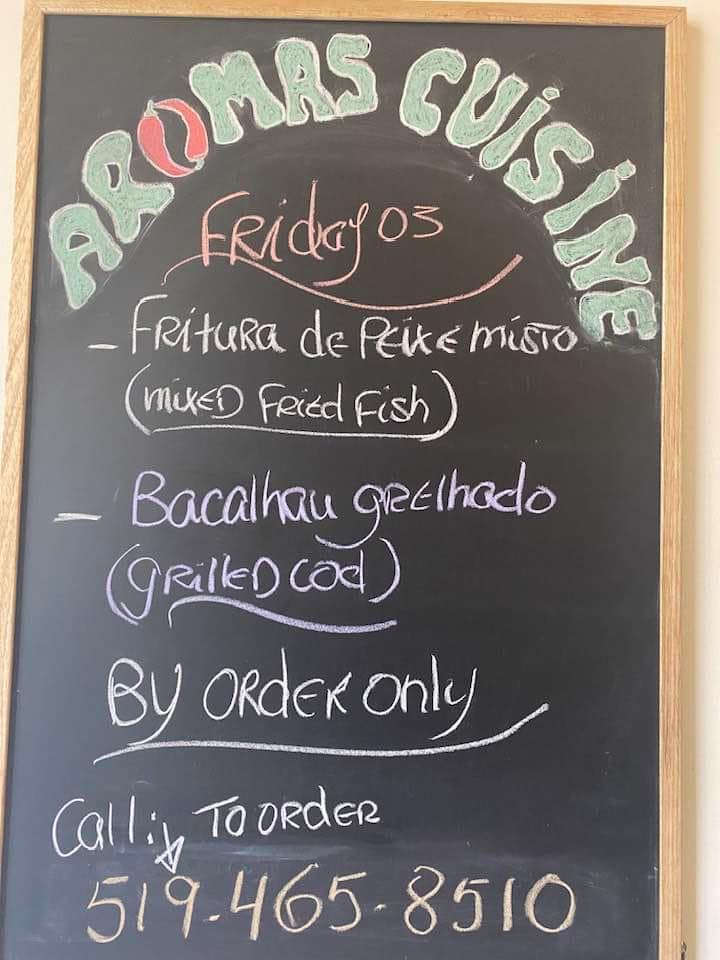 AROMAS CUISINE
Friday 03
- Fritura de Peixe misto
(mixed Fried Fish)
- Bacalhau grelhado
(grilled cod)
By order only
Call: To order
519-465-8510